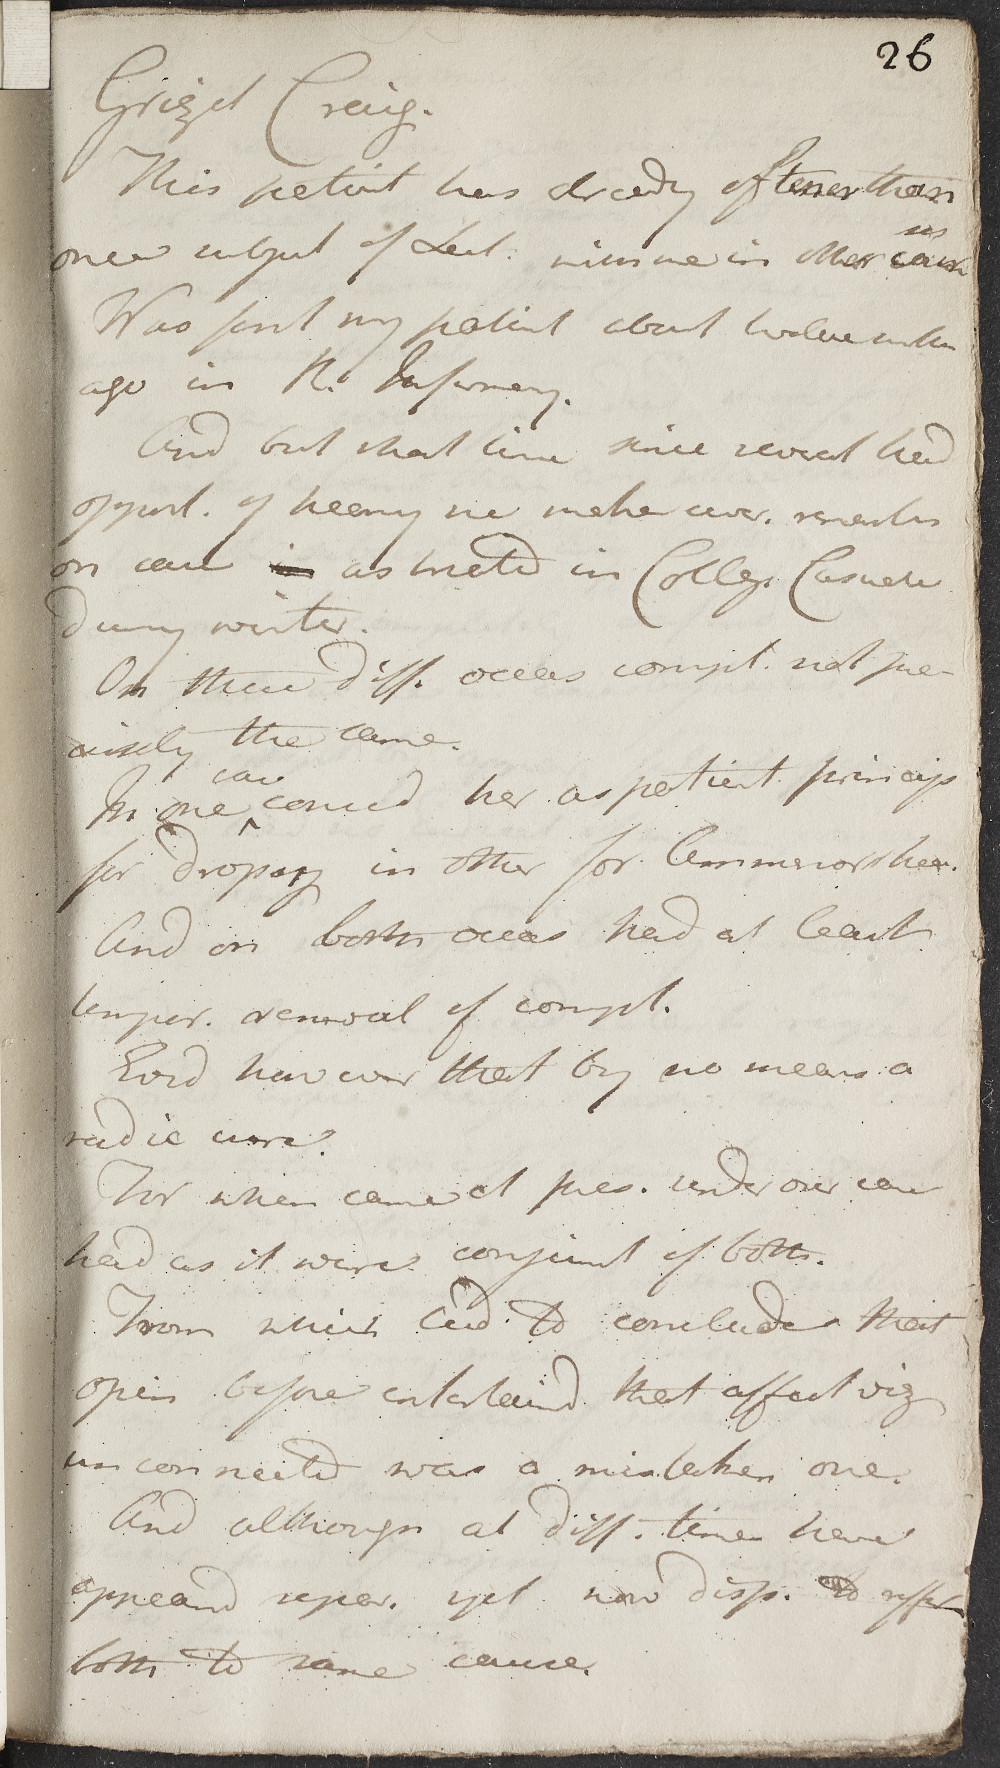 26
Grizel Craig.
This patient has already oftener than
once subject of Lect.
Was first my patient about twelve
ago in R. Infirmary.
And but short time since several had
opport. of hearing me make
on case as treated in College Casuale
during winter.
On these diff. occas compl. not pre-
cisely the same.
case
In one consid her as patient princip
for Dropsy in other for Amenorrhea.
And on both occas had at least
tempor. removal of compl.
Evid however that by no means a
radic cure.
For when came at pres. under our care
had as it were conjunct of both.
From which led to conclude that
opin before entertaind that affect viz
unconnected was a mistaken one.
And although at diff. times have
appeard separ. yet now disp. to refer
both to same cause.